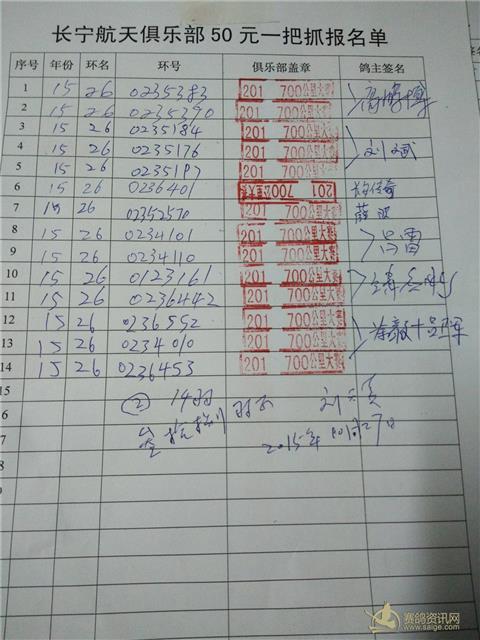 长宁航天俱乐部50元一把抓报名单
序号 年份 环名 环号 俱乐部盖章 鸽主签名
1 15 26 0235383 201 700公里大赛
2 15 26 0235390 201 700公里大赛
3 15 26 0235184 201 700公里大赛
4 15 26 0235176 201 700公里大赛 刘斌
5 15 26 0235187 201 700公里大赛
6 15 26 0236401 201 700公里大赛
7 15 26 02352570 201 700公里大赛 薛
8 15 26 0234101 201 700公里大赛 吕雷
9 15 26 0234110 201 700公里大赛
10 15 26 0123161 201 700公里大赛
11 15 26 0236442 201 700公里大赛
12 15 26 0236552 201 700公里大赛
13 15 26 0234010 201 700公里大赛
14 15 26 0236453 201 700公里大赛
15 ② 14羽
6
7 2015年10月27日
8
9
0
1
2
3
4
5
赛鸽资讯网
www.saige.com